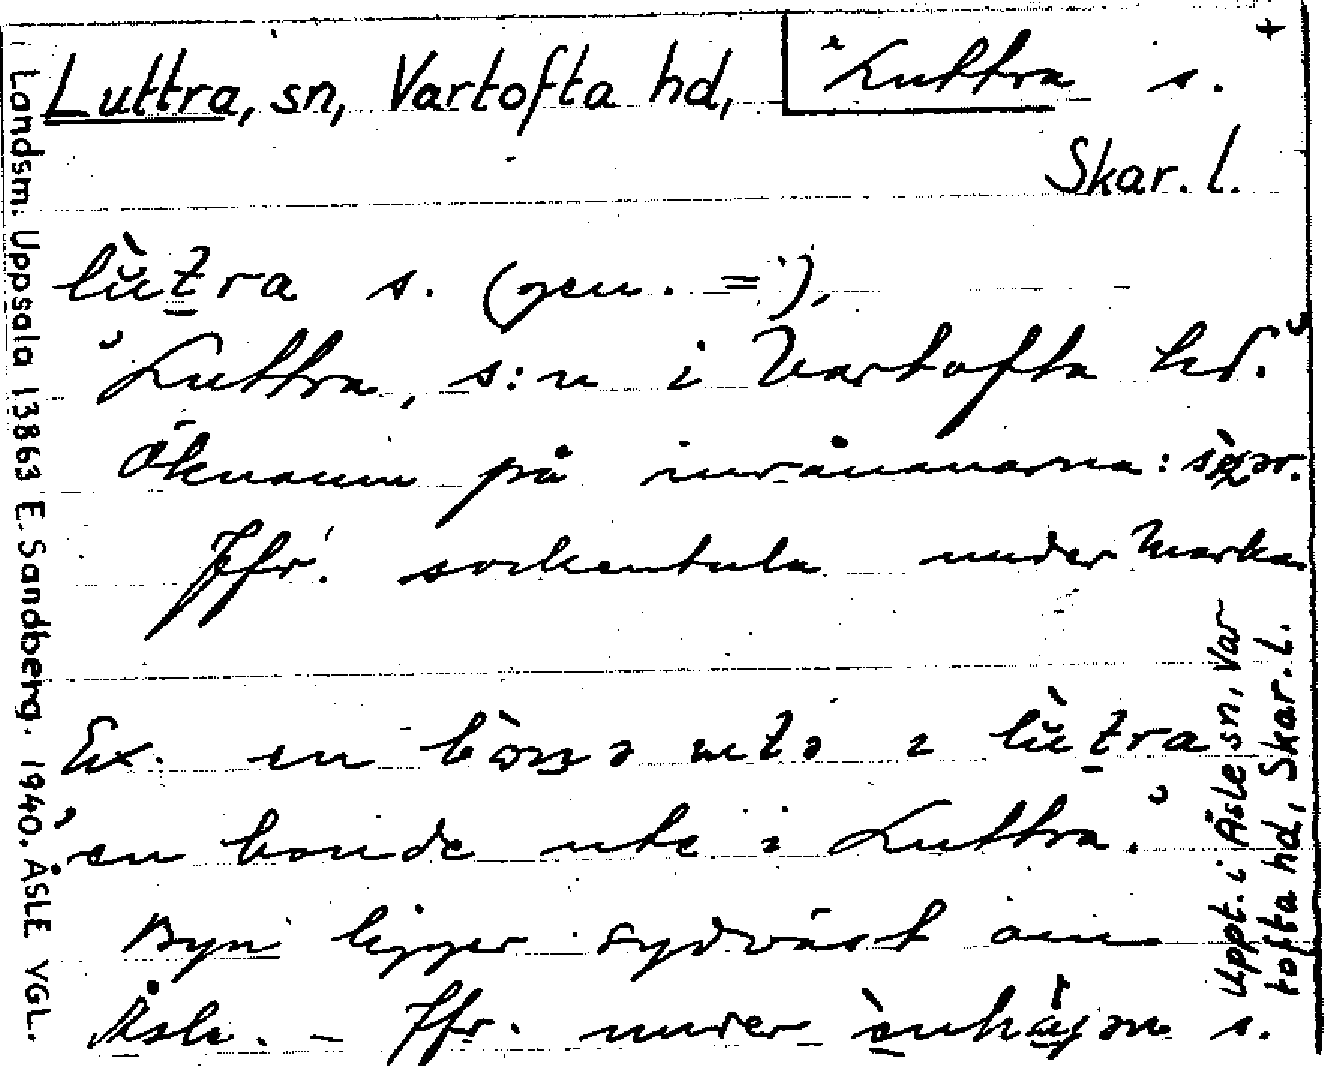 Luttra, sn, Vartofta hd, "Luttra s. +
Skar. l.
lùtra s. (gen. =),
"Luttra, s:n i Vartofta hd."
Öknamn på invånarna:
Jfr. sockentula under Marka
Ex. en utə i lùtra
"en bonde ute i Luttra."
Byn ligger sydväst om
Åsle. - Jfr. under s.
Landsm. Uppsala 13863 E. Sandberg. 1940. ÅSLE VGL.
Uppt. i Åsle sn, Var
tofta hd, Skar. l.